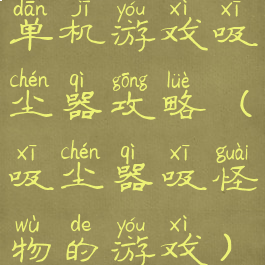 dān jī yóu xì xī
单机游戏吸
chén qì gōng lüè
尘器攻略（
xī chén qì xī guài
吸尘器吸怪
wù de yóu xì
物的游戏）